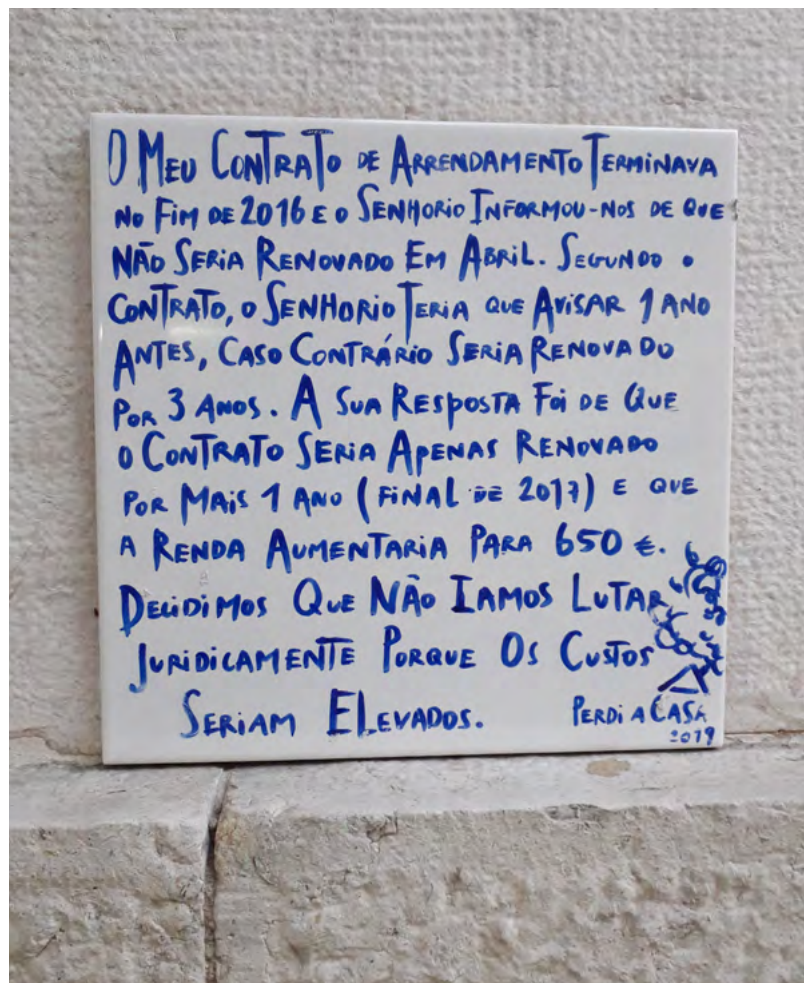 O MEU CONTRATO DE ARRENDAMENTO TERMINAVA
NO FIM DE 2016 E O SENHORIO INFORMOU-NOS DE QUE
NÃO SERIA RENOVADO EM ABRIL. SEGUNDO O
CONTRATO, O SENHORIO TERIA QUE AVISAR 1 ANO
ANTES, CASO CONTRÁRIO SERIA RENOVADO
POR 3 ANOS. A SUA RESPOSTA FOI DE QUE
O CONTRATO SERIA APENAS RENOVADO
POR MAIS 1 ANO (FINAL DE 2017) E QUE
A RENDA AUMENTARIA PARA 650 €.
DECIDIMOS QUE NÃO IAMOS LUTAR
JURIDICAMENTE PORQUE OS CUSTOS
SERIAM ELEVADOS. PERDI A CASA
2019